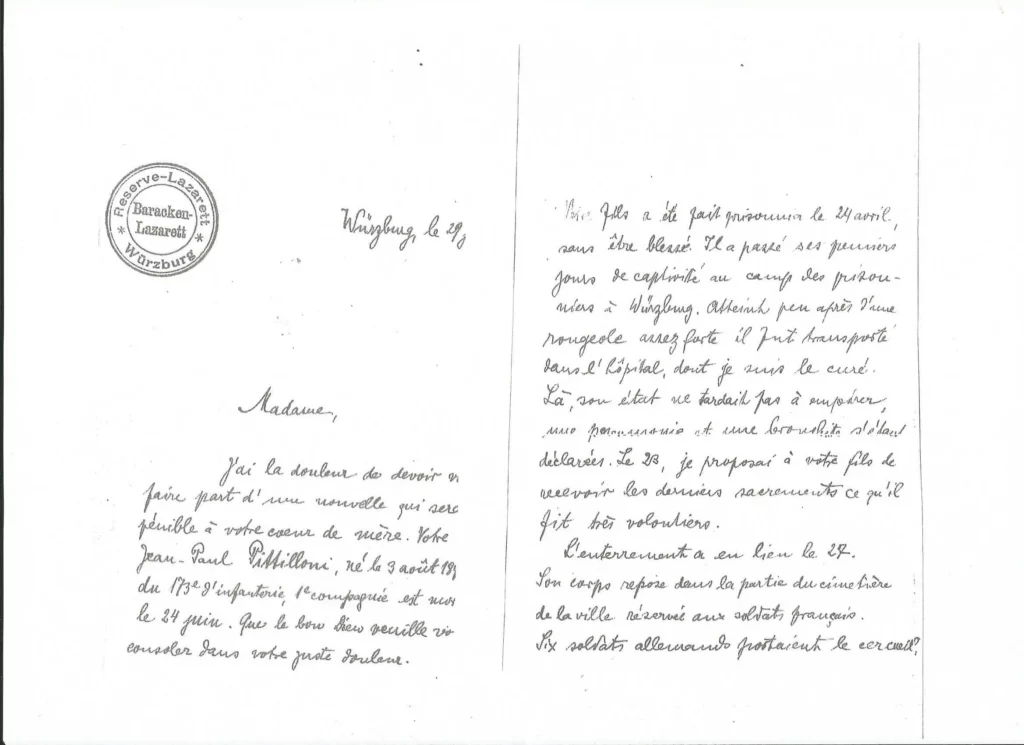 Reserve-Lazarett
Baracken-
Lazarett
* Würzburg *
Würzburg, le 29
Madame,
J'ai la douleur de devoir v
faire part d'une nouvelle qui sera
pénible à votre coeur de mère. Votre
Jean-Paul Pittilloni, né le 3 août 18
du 173e d'infanterie, 1e compagnie est mor
le 24 juin. Que le bon Dieu veuille vo
consoler dans votre juste douleur.
fils a été fait prisonnier le 24 avril,
sans être blessé. Il a passé ses premiers
jours de captivité au camp des prison-
niers à Würzburg. Atteint peu après d'une
rougeole assez forte il fut transporté
dans l'hôpital, dont je suis le curé.
Là, son état ne tardait pas à empérer,
une pneumonie et une bronchite s'étant
déclarées. Le 23, je proposai à votre fils de
recevoir les derniers sacrements ce qu'il
fit très volontiers.
L'enterrement a eu lieu le 27.
Son corps repose dans la partie du cimetière
de la ville réservé aux soldats français.
Six soldats allemands portaient le cercueil,